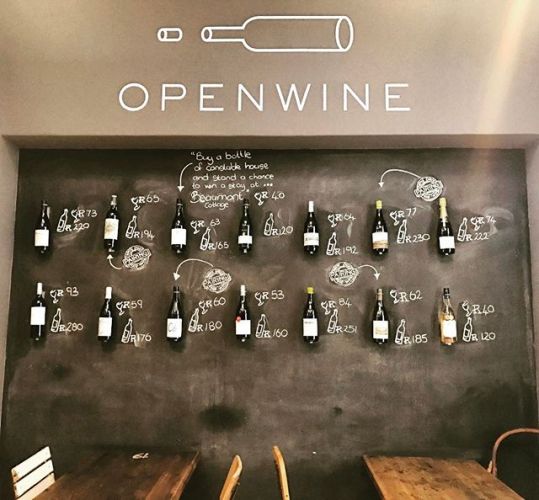 OPENWINE
"Buy a bottle
of constable house
and stand a chance
to win a stay at ...
Beaumont"
Cottage
R73
R220
R65
R194
R63
R165
R40
R120
R64
R192
R77
R230
R74
R222
R93
R280
R59
R176
R60
R180
R53
R160
R84
R251
R62
R185
R40
R120